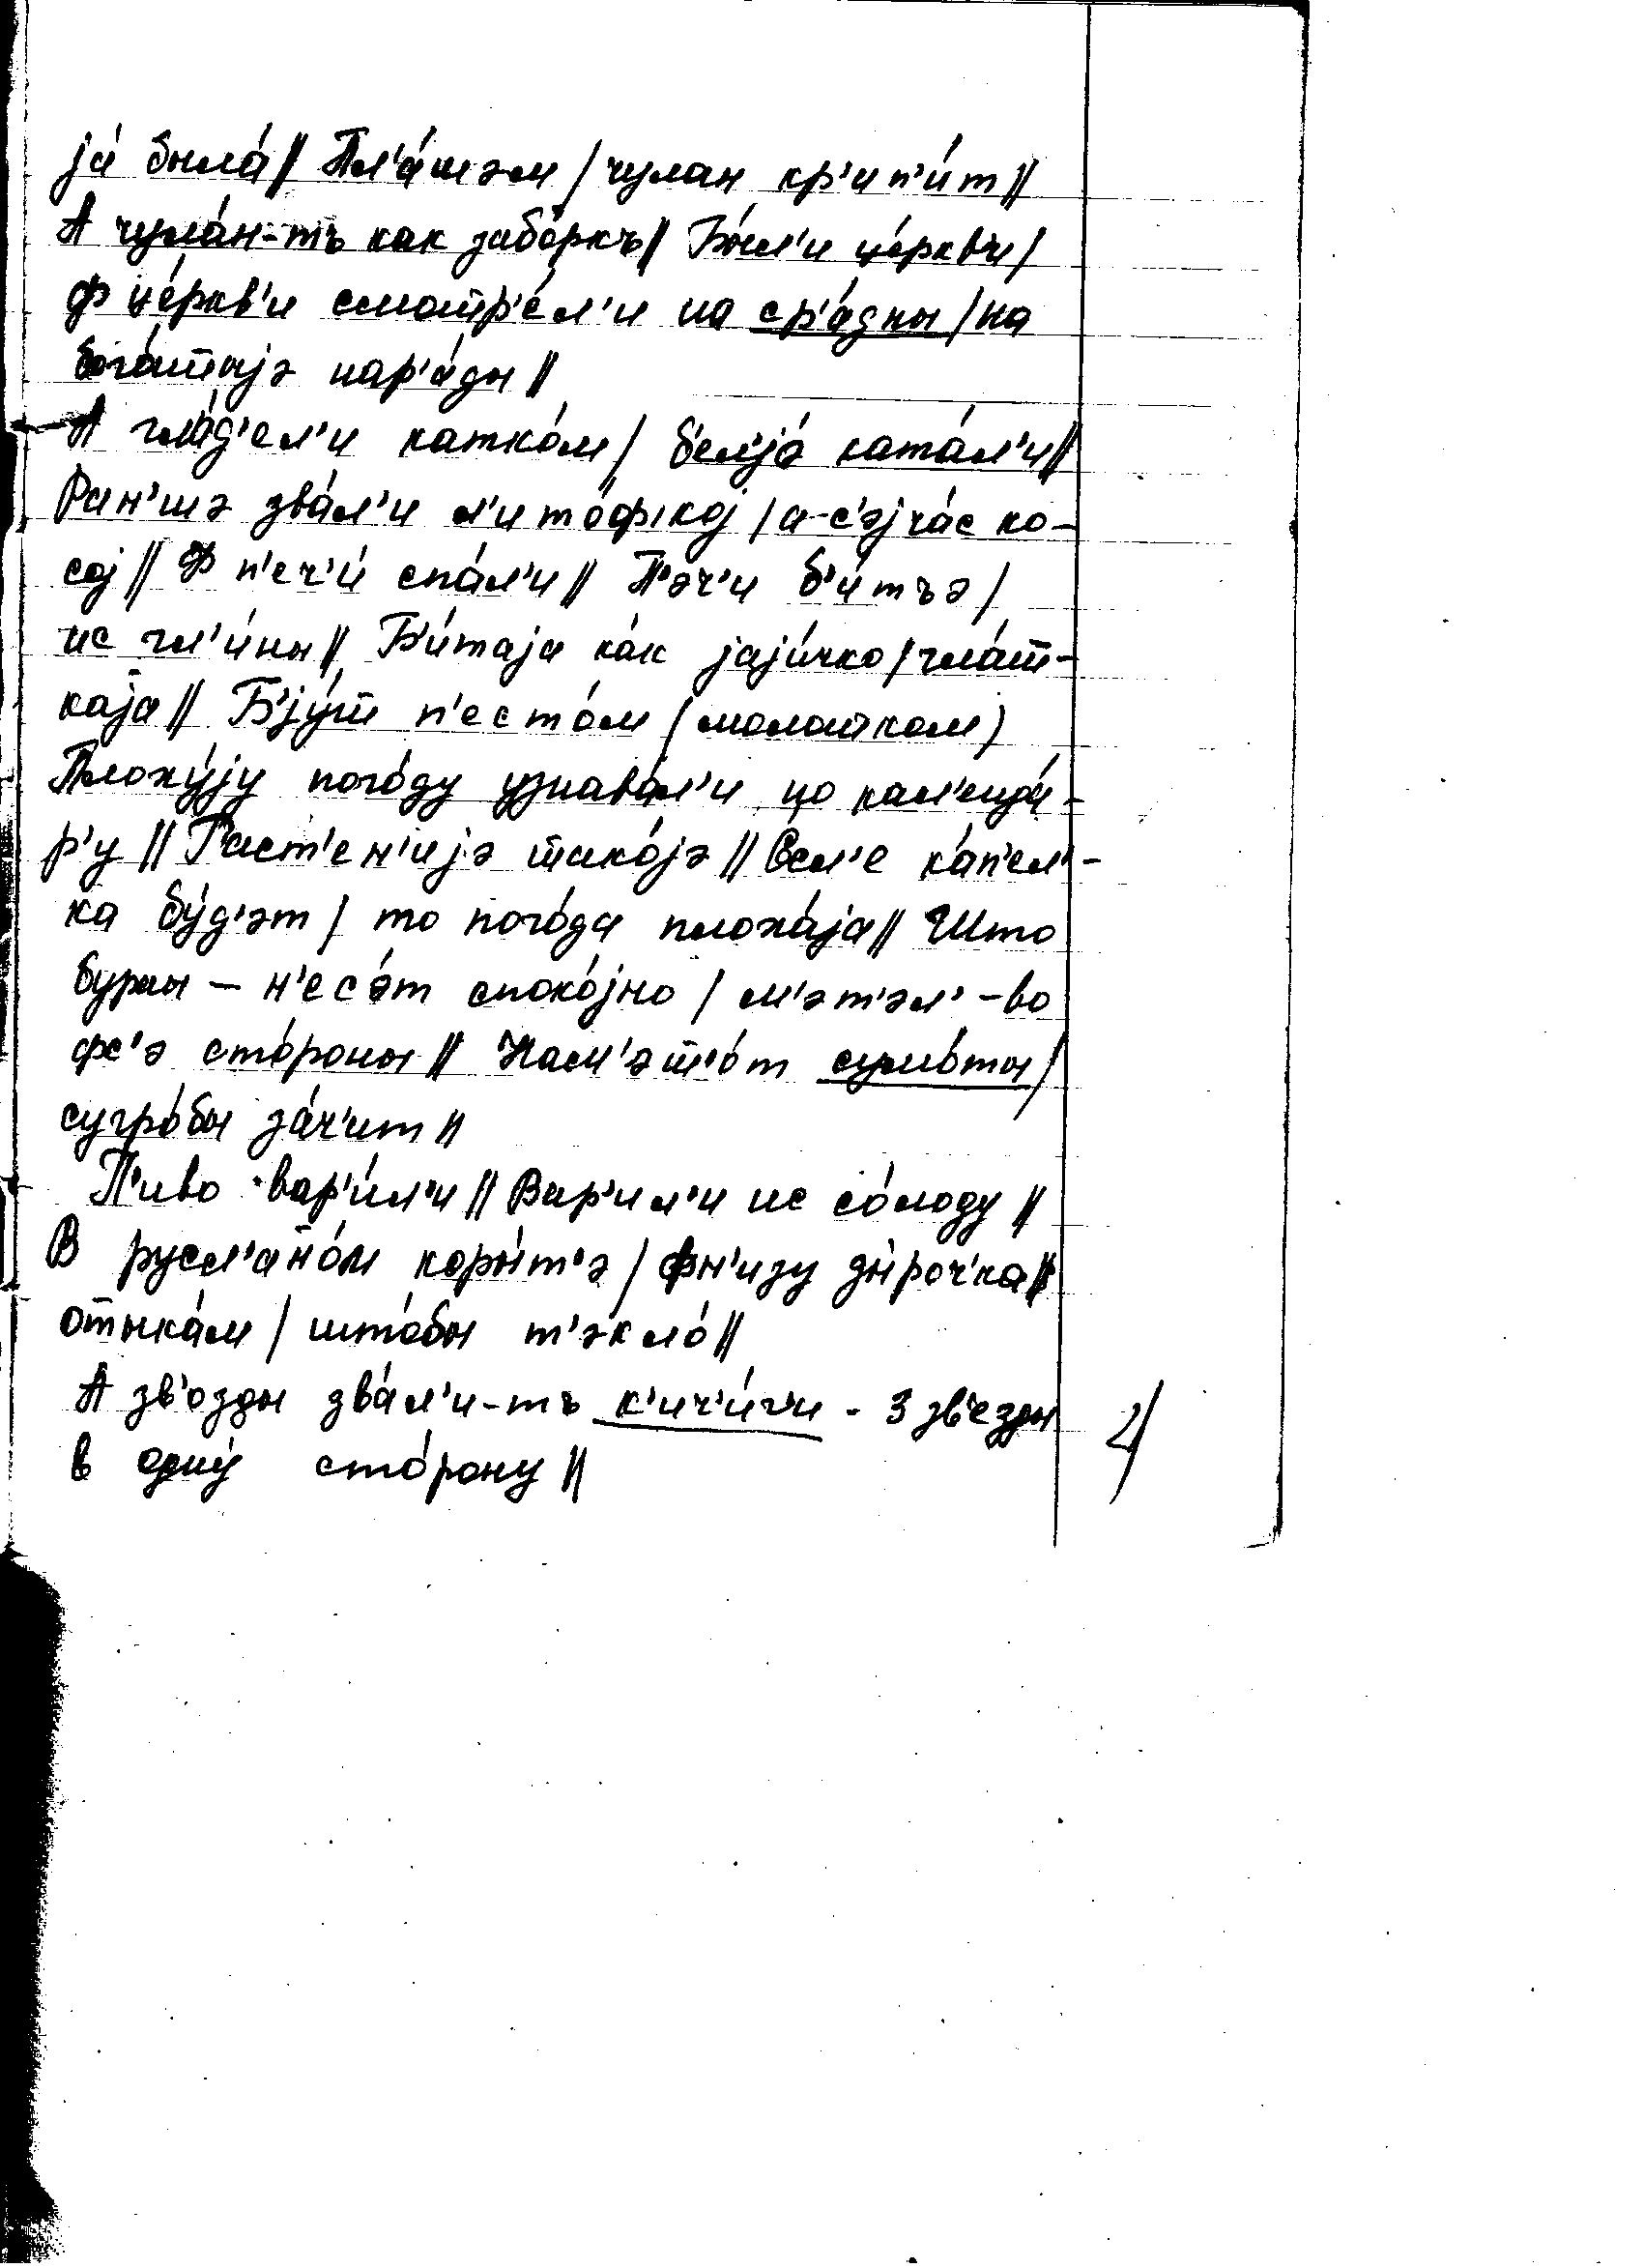 jа́ была́ // Пл'а́шэм / чулан кр'ип'и́т //
А чула́н-тъ как забо́ркъ // Бы́л'и це́ркви /
ф це́ркв'и смотр'е́л'и на ср'а́дны / на
бога́тыjэ нар'а́ды //
А гла́д'ел'и катко́м / б'ел'jо́ ката́л'и //
Ран'шэ зва́л'и л'ито́фкоj / а-с'эjча́с ко-
соj // Ф п'еч'и́ спа́л'и // П'эч'и б'и́тъэ /
ис гл'и́ны // Б'и́таjа ка́к jаjи́чко / гла́т-
каjа // Б'jу́т п'есто́м (молотком)
Плоху́jу пого́ду узнава́л'и по кал'енда-
р'у // Раст'ен'иjэ тако́jэ // Есл'е ка́п'ел'-
ка бу́д'эт / то пого́да плоха́jа // Што
буран – н'ес'о́т споко́jно / м'эт'эл' – во
фс'э сто́роны // Нам'эт'о́т сумо́ты /
сугро́бы за́ч'ит //
П'иво вар'и́л'и // Вар'ил'и ис со́лоду //
В русл'ано́м коры́т'э / фн'изу ды́роч'ка //
отыка́м / што́бы т'экло́ //
А зв'озды зва́л'и-тъ к'ич'и́г'и - 3 зв'езды
в одну́ сто́рону //
4